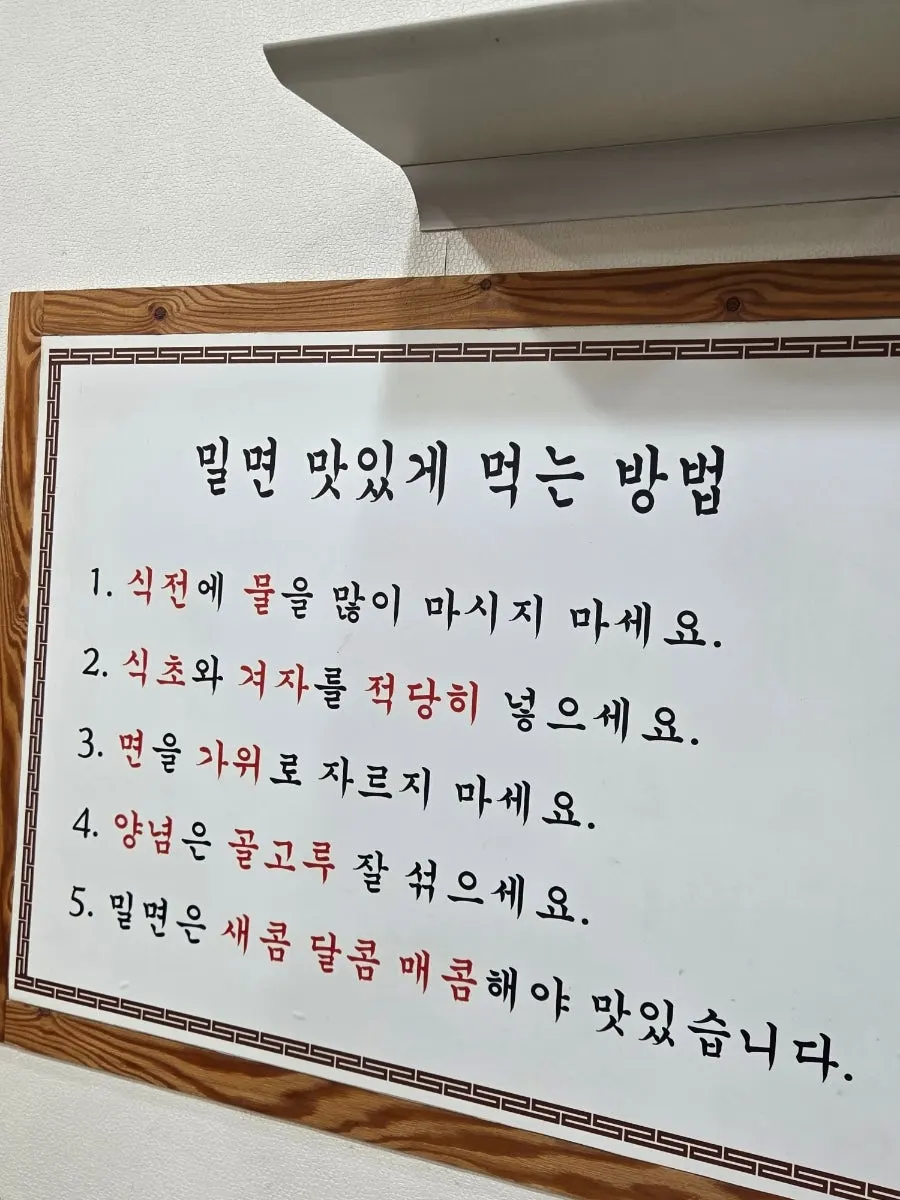 밀면 맛있게 먹는 방법
1. 식전에 물을 많이 마시지 마세요.
2. 식초와 겨자를 적당히 넣으세요.
3. 면을 가위로 자르지 마세요.
4. 양념은 골고루 잘 섞으세요.
5. 밀면은 새콤 달콤 매콤해야 맛있습니다.